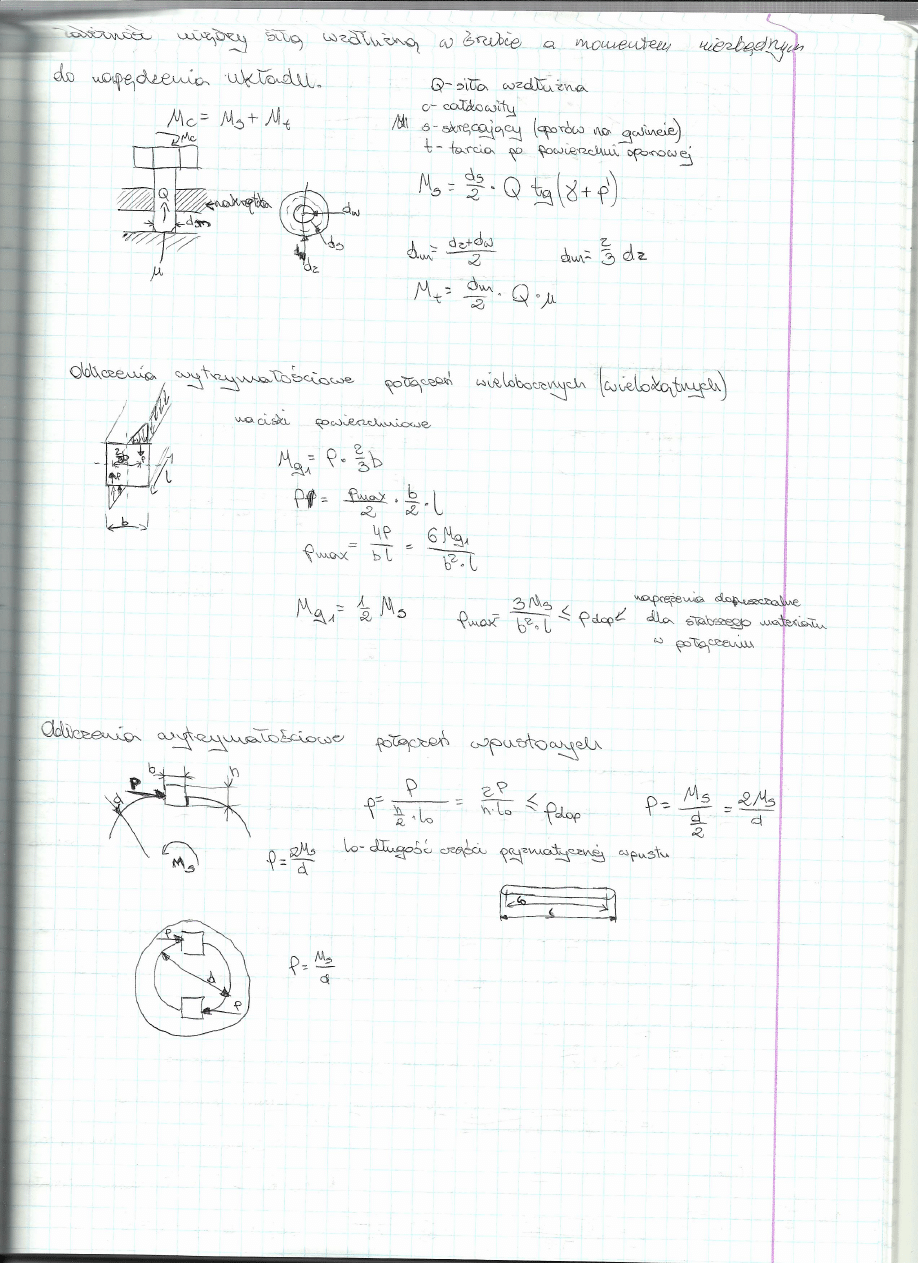 między siłą wzdłużną w śrubie a momentem niezbędnym
do napędzenia układu.
Q-siła wzdłużna
c-całkowity
s-skręcający (oporów na gwincie)
t-tarcia po powierzchni oporowej
Mc = Ms + Mt
Mc
Ms = ds/2 · Q tg(γ + ρ')
Q
nakrętka
dw
ds
dz
μ
dm = (dz+dw)/2
dm = 2/3 dz
Mt = dm/2 · Q · μ
Obliczenia wytrzymałościowe połączeń wielobocznych (wielokątnych)
naciski powierzchniowe
Mg1 = P · 2/3 b
P = pmax/2 · b/2 · l
pmax = 4P/(bl) = 6Mg1/(b²·l)
P
P
l
b
Mg1 = 1/2 Ms
pmax = 3Ms/(b²·l) ≤ pdop
naprężenia dopuszczalne
dla słabszego materiału
w połączeniu
Obliczenia wytrzymałościowe połączeń wpustowych
b
h
P
d
Ms
p = P/(h/2 · lo) = 2P/(h·lo) ≤ pdop
P = Ms/(d/2) = 2Ms/d
P = 2Ms/d
lo-długość części pryzmatycznej wpustu
lo
l
P
d
P
P = Ms/d